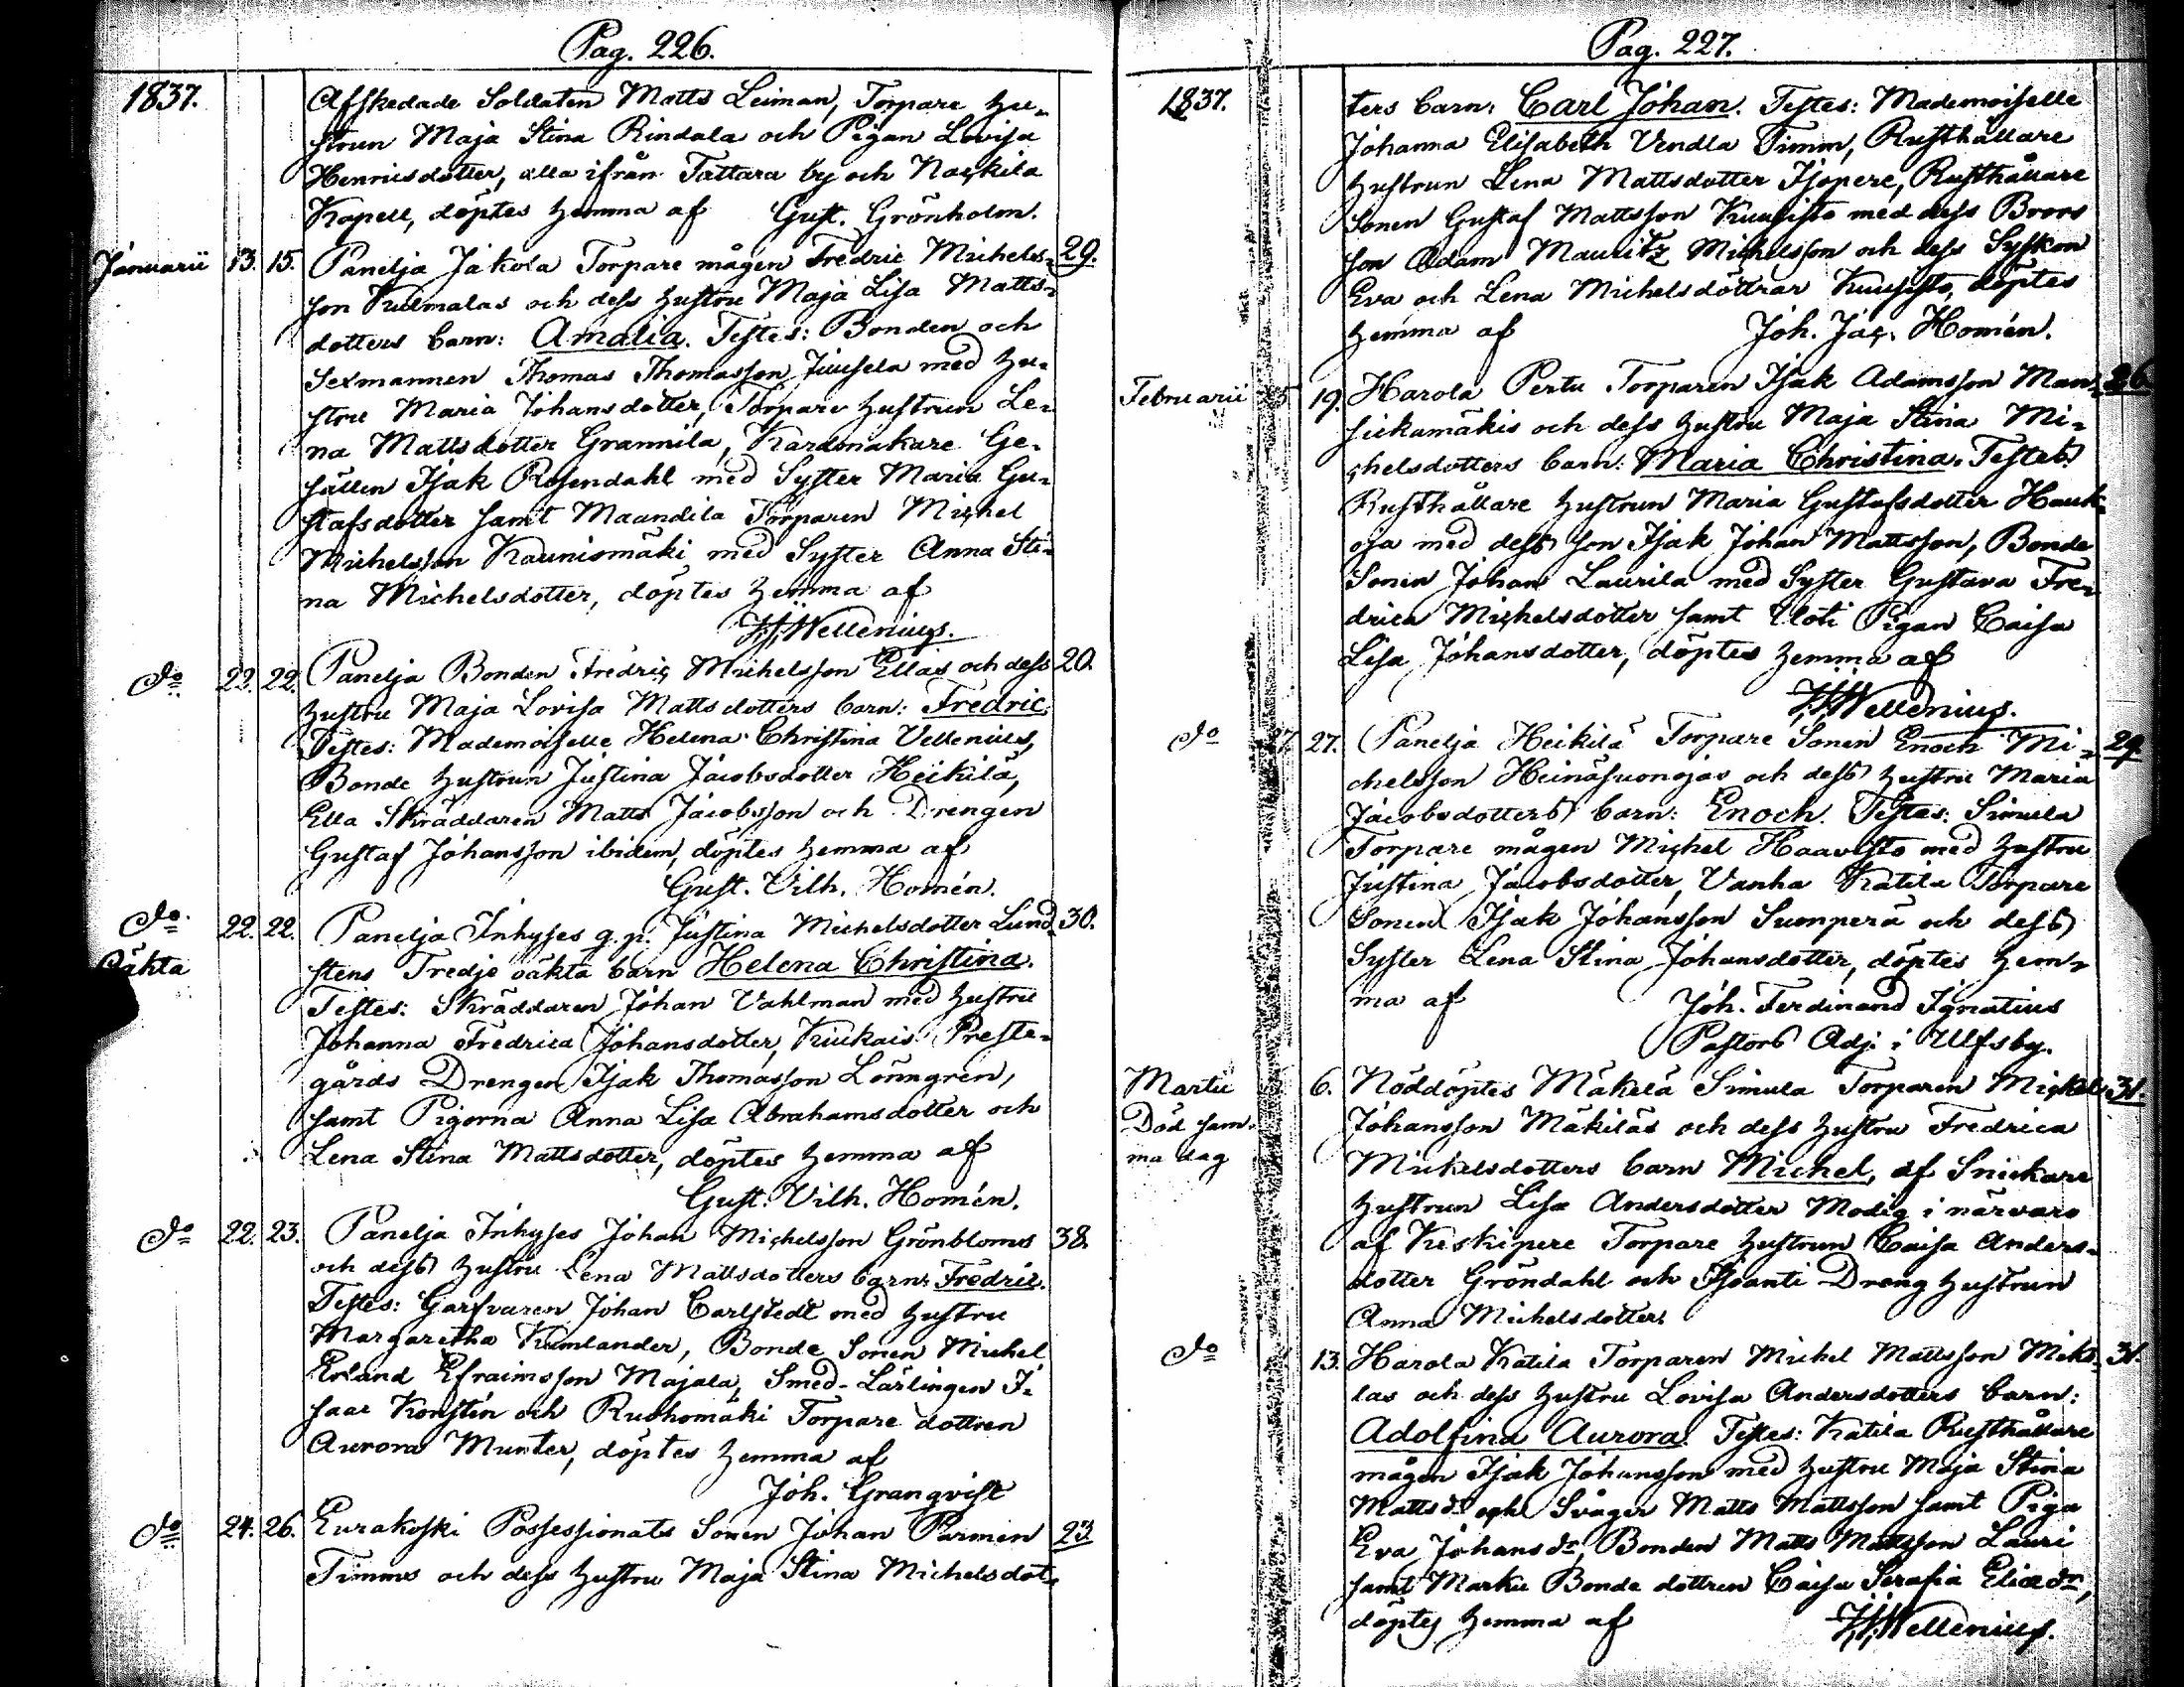 Pag. 226.
1837.
Afskedade Soldaten Matts Leiman, Torpare hu-
strun Maja Stina Rindala och Pigan Lovisa
Henricsdotter, alla ifrån Tattara by och Nackila
Kapell, döptes hemma af Gust. Grönholm.
Januarii 13. 15. Panelja Jakola Torpare mågen Fredric Michels- 29.
son Kulmalas och dess hustru Maja Lisa Matts-
dotters barn: Amalia. Testes: Bonden och
Sexmannen Thomas Thomasson Juusela med hu-
stru Maria Johansdotter, Torpare hustrun Le-
na Mattsdotter Grannila, Kardmakare Ge-
sällen Isak Rosendahl med Syster Maria Gu-
stafsdotter samt Maandila Torparen Michel
Michelsson Kaunismäki med Syster Anna Sti-
na Michelsdotter, döptes hemma af
Wellenius.
do 22. 22. Panelja Bonden Fredric Michelsson Ellas och dess 20.
hustru Maja Lovisa Mattsdotters barn: Fredric.
Testes: Mademoiselle Helena Christina Vellenius,
Bonde hustrun Justina Jacobsdotter Heikilä,
Ella Skräddaren Matts Jacobsson och Drengen
Gustaf Johansson ibidem, döptes hemma af
Gust. Vilh. Homén.
do 22. 22. Panelja Inhyses q. p. Justina Michelsdotter Lund- 30.
Oäkta
stens Tredje oäkta barn Helena Christina.
Testes: Skräddaren Johan Vahlman med hustru
Johanna Fredrica Johansdotter, Kiukais Preste-
gårds Drengen Isak Thomasson Lönngren,
samt Pigorna Anna Lisa Abrahamsdotter och
Lena Stina Mattsdotter, döptes hemma af
Gust. Vilh. Homén.
do 22. 23. Panelja Inhyses Johan Michelsson Grönbloms 38.
och dess hustru Lena Mattsdotters barn: Fredric.
Testes: Garfvaren Johan Carlstedt med hustru
Margaretha Kumlander, Bonde Sonen Michel
Erland Efraimsson Majala, Smed-Lärlingen I-
saac Konstén och Ruohomäki Torpare dottren
Aurora Munter, döptes hemma af
Joh. Granqvist
do 24. 26. Eurakoski Possessionats Sonen Johan Parmen 23
Timms och dess hustru Maja Stina Michelsdot-
Pag. 227.
1837.
ters barn: Carl Johan. Testes: Mademoiselle
Johanna Elisabeth Vendla Timm, Rusthållare
hustrun Lena Mattsdotter Isopere, Rusthållare
Sonen Gustaf Mattsson Kuusisto med dess Brors
son Adam Mauritz Michelsson och dess Syskon
Eva och Lena Michelsdöttrar Kuusisto, döptes
hemma af Joh. Jac. Homén.
Februarii 5 19. Harola Pertu Torparen Isak Adamsson Man- 26
sickamäkis och dess hustru Maja Stina Mi-
chelsdotters barn: Maria Christina. Testes:
Rusthållare hustrun Maria Gustafsdotter Hauk-
oja med dess son Isak Johan Mattsson, Bonde
Sonen Johan Laurila med Syster Gustava Fre-
drica Michelsdotter samt Uoti Pigan Caisa
Lisa Johansdotter, döptes hemma af
Wellenius.
do 7 27. Panelja Heikilä Torpare Sonen Enoch Mi- 29.
chelsson Heinäsuonojas och dess hustru Maria
Jacobsdotters barn: Enoch. Testes: Simula
Torpare mågen Michel Haavisto med hustru
Justina Jacobsdotter, Vanha Katila Torpare
Sonen Isak Johansson Suonperä och dess
Syster Lena Stina Johansdotter, döptes hem-
ma af Joh. Ferdinand Ignatius
Pastors Adj. i Ulfsby.
Martii 6. Nöddöptes Mäkelä Simula Torparen Michel 31.
Död sam-
ma dag
Johansson Mäkiläs och dess hustru Fredrica
Michelsdotters barn Michel, af Snickare
hustrun Lisa Andersdotter Modig i närvaro
af Keskipere Torpare hustrun Caisa Anders-
dotter Gröndahl och Isoanti Dreng hustrun
Anna Michelsdotter.
do 13. Harola Katila Torparen Michel Mattsson Mik- 31.
las och dess hustru Lovisa Andersdotters barn:
Adolfina Aurora. Testes: Katila Rusthållare
mågen Isak Johansson med hustru Maja Stina
Matts dr och Svåger Matts Mattsson samt Piga
Eva Johans dr, Bonden Matts Mattsson Lauri
samt Marku Bonde dottren Caisa Serafia Elias dr,
döptes hemma af Wellenius.